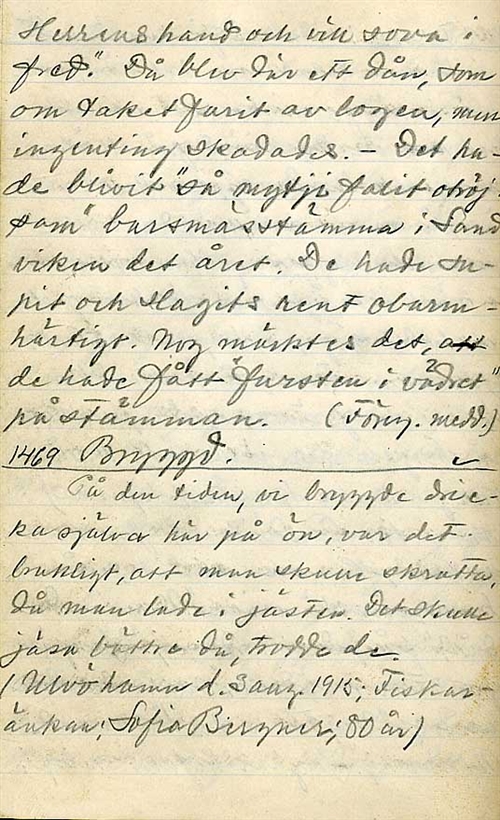 Herrens hand och vill sova i
fred". Då blev där ett dån, som
om taket farit av logen, men
ingenting skadades. - Det ha-
de blivit "så mytji falit otröj
som" barsmässtämma i Sand
viken det året. De hade su-
pit och slagits rent obarm-
härtigt. Nog märktes det, att
de hade fått "fursten i vädret"
på stämman. (Föreg. medd.)
1469 Bryggd.
På den tiden, vi bryggde dric-
ka själva här på ön, var det
brukligt, att man skulle skratta,
då man lade i jästen. Det skulle
jäsa bättre då, trodde de.
(Ulvöhamn d. 3 aug. 1915; Fiskar-
änkan; Sofia Bergner; 80 år)